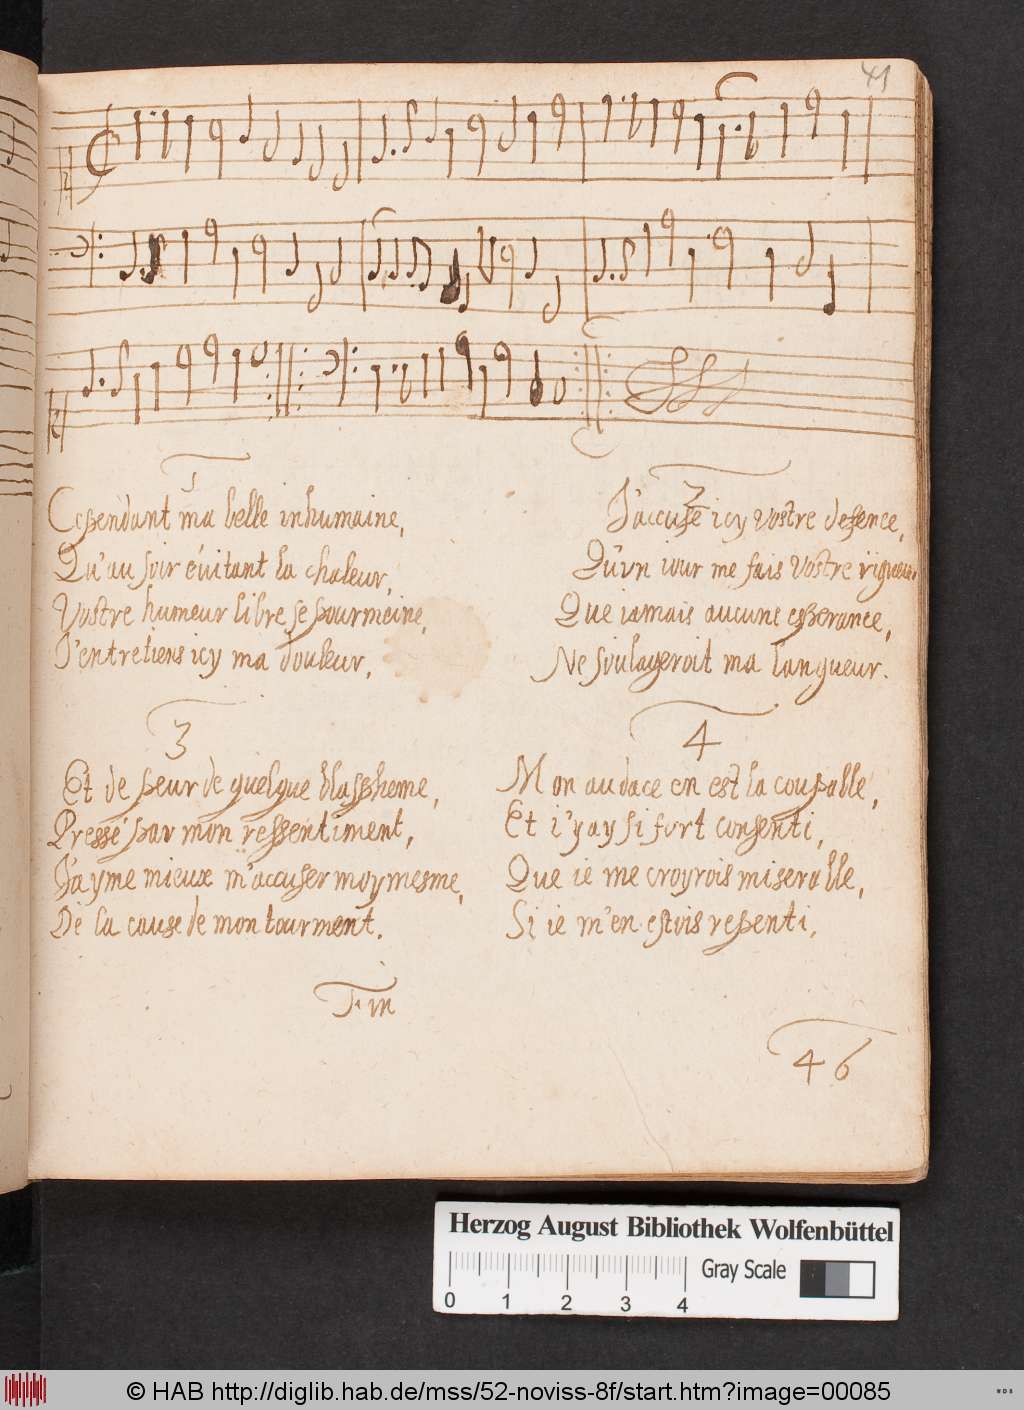 41
1
Cependant ma belle inhumaine,
Qu'au soir éuitant la chaleur,
Vostre humeur libre se pourmeine,
J'entretiens icy ma douleur.
2
J'accuse icy vostre defence,
Qu'vn iour me fais vostre rigueur
Que iamais aucune esperance,
Ne soulageroit ma langueur.
3
Et de peur de quelque blaspheme,
Pressé par mon ressentiment,
J'ayme mieux m'accuser moymesme,
De la cause de mon tourment.
4
Mon audace en est la coupalle,
Et i'y ay si fort consenti,
Que ie me croyrois miseralle,
Si ie m'en estois repenti,
Fin
46
Herzog August Bibliothek Wolfenbüttel
Gray Scale
0 1 2 3 4
© HAB http://diglib.hab.de/mss/52-noviss-8f/start.htm?image=00085